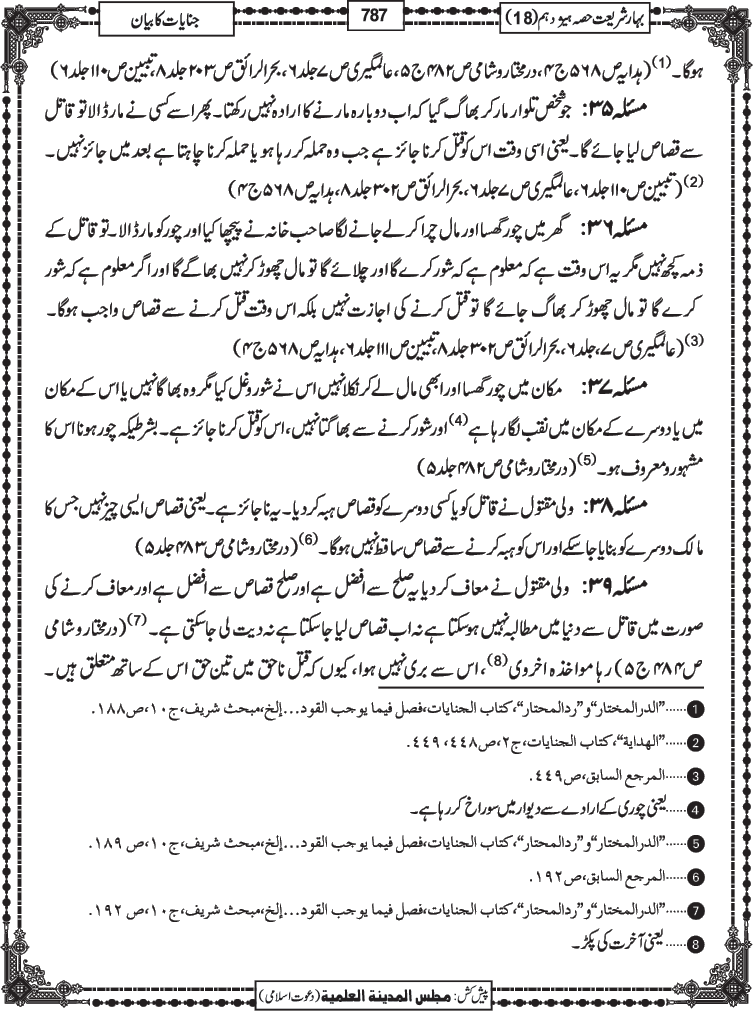 بہار شریعت حصہ ہیژدہم (18)
787
جنایات کا بیان
ہوگا۔(1)(ہدایہ ص۵۶۸ ج۴، درمختار وشامی ص۴۸۲ ج۵، عالمگیری ص۷ جلد۶، بحرالرائق ص۲۰۳ جلد۸، تبیین ص۱۱۰ جلد۶)
مسئلہ ۳۵: جو شخص تلوار مار کر بھاگ گیا کہ اب دوبارہ مارنے کا ارادہ نہیں رکھتا۔ پھر اسے کسی نے مار ڈالا تو قاتل
سے قصاص لیا جائے گا۔ یعنی اسی وقت اس کو قتل کرنا جائز ہے جب وہ حملہ کر رہا ہو یا حملہ کرنا چاہتا ہے بعد میں جائز نہیں۔
(2)(تبیین ص۱۱۰ جلد۶، عالمگیری ص۷ جلد۶، بحرالرائق ص۳۰۲ جلد۸، ہدایہ ص۵۶۸ ج۴)
مسئلہ ۳۶: گھر میں چور گھسا اور مال چرا کر لے جانے لگا صاحب خانہ نے پیچھا کیا اور چور کو مار ڈالا۔ تو قاتل کے
ذمہ کچھ نہیں مگر یہ اس وقت ہے کہ معلوم ہے کہ شور کرے گا اور چلائے گا تو مال چھوڑ کر نہیں بھاگے گا اور اگر معلوم ہے کہ شور
کرے گا تو مال چھوڑ کر بھاگ جائے گا تو قتل کرنے کی اجازت نہیں بلکہ اس وقت قتل کرنے سے قصاص واجب ہوگا۔
(3)(عالمگیری ص۷، جلد۶، بحرالرائق ص۳۰۲ جلد۸، تبیین ص۱۱۱ جلد۶، ہدایہ ص۵۶۸ ج۴)
مسئلہ ۳۷: مکان میں چور گھسا اور ابھی مال لے کر نکلا نہیں اس نے شور وغل کیا مگر وہ بھاگا نہیں یا اس کے مکان
میں یا دوسرے کے مکان میں نقب لگا رہا ہے(4)اور شور کرنے سے بھاگتا نہیں، اس کو قتل کرنا جائز ہے۔ بشرطیکہ چور ہونا اس کا
مشہور و معروف ہو۔(5)(درمختار وشامی ص۴۸۲ جلد۵)
مسئلہ ۳۸: ولی مقتول نے قاتل کو یا کسی دوسرے کو قصاص ہبہ کر دیا۔ یہ ناجائز ہے۔ یعنی قصاص ایسی چیز نہیں جس کا
مالک دوسرے کو بنایا جاسکے اور اس کو ہبہ کرنے سے قصاص ساقط نہیں ہوگا۔(6)(درمختار وشامی ص۴۸۳ جلد۵)
مسئلہ ۳۹: ولی مقتول نے معاف کر دیا یہ صلح سے افضل ہے اور صلح قصاص سے افضل ہے اور معاف کرنے کی
صورت میں قاتل سے دنیا میں مطالبہ نہیں ہوسکتا ہے نہ اب قصاص لیا جاسکتا ہے نہ دیت لی جاسکتی ہے۔(7)(درمختار وشامی
ص۴۸۴ ج۵) رہا مواخذہ اخروی(8)، اس سے بری نہیں ہوا، کیوں کہ قتل ناحق میں تین حق اس کے ساتھ متعلق ہیں۔
1......"الدرالمختار"و"ردالمحتار"، كتاب الجنايات،فصل فيما يوجب القود...إلخ،مبحث شريف،ج۱۰،ص۱۸۸.
2......"الهداية"، كتاب الجنايات،ج۲،ص۴۴۸، ۴۴۹.
3......المرجع السابق،ص۴۴۹.
4......یعنی چوری کے ارادے سے دیوار میں سوراخ کر رہا ہے۔
5......"الدرالمختار"و"ردالمحتار"، كتاب الجنايات،فصل فيما يوجب القود...إلخ،مبحث شريف،ج۱۰،ص۱۸۹.
6......المرجع السابق،ص۱۹۲.
7......"الدرالمختار"و"ردالمحتار"، كتاب الجنايات،فصل فيما يوجب القود...إلخ،مبحث شريف،ج۱۰،ص۱۹۲.
8......یعنی آخرت کی پکڑ۔
پیش کش: مجلس المدينة العلمية (دعوت اسلامی)